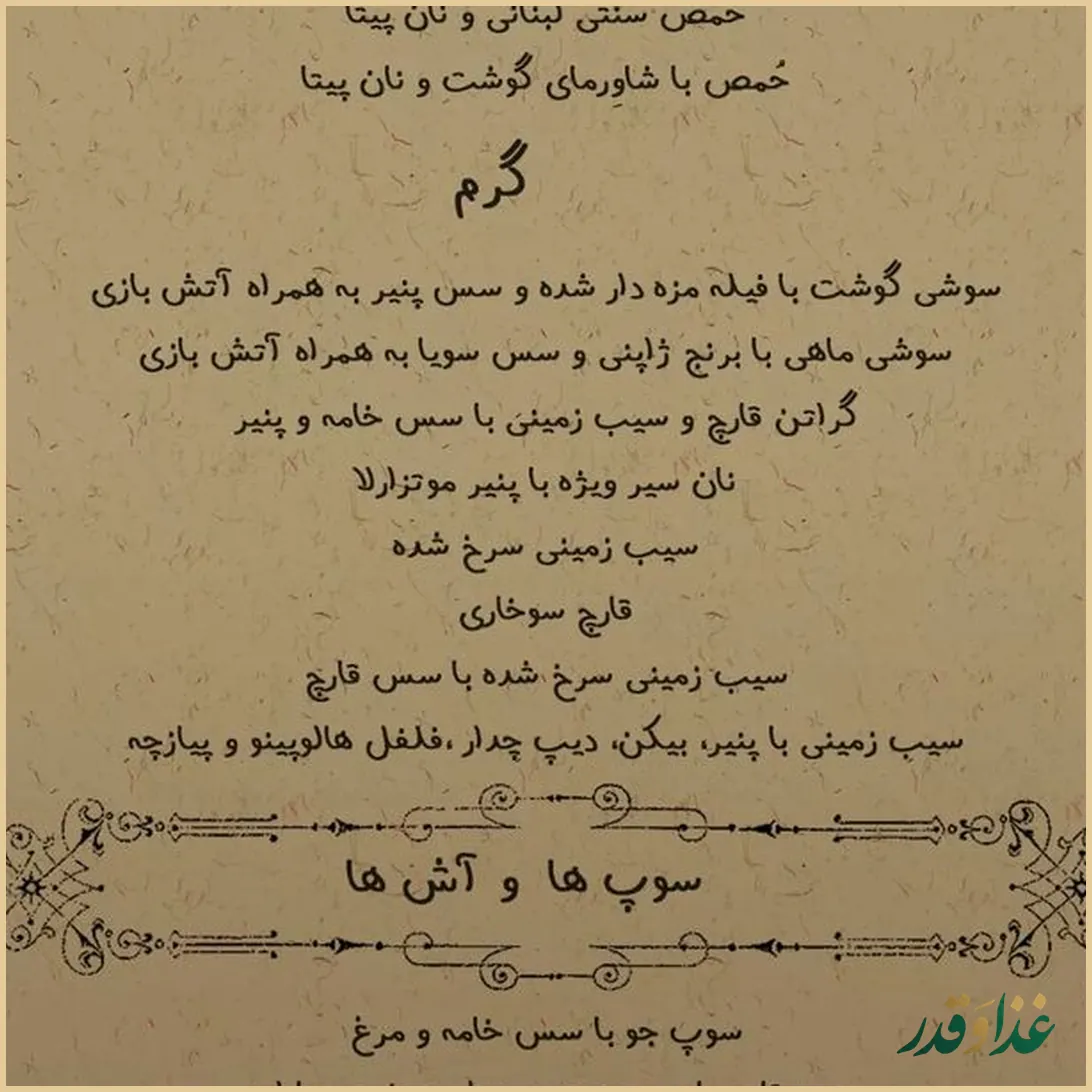 حمص سنتی لبنانی و نان پیتا
حُمص با شاوِرمای گوشت و نان پیتا
گرم
سوشی گوشت با فیله مزه دار شده و سس پنیر به همراه آتش بازی
سوشی ماهی با برنج ژاپنی و سس سویا به همراه آتش بازی
گراتن قارچ و سیب زمینی با سس خامه و پنیر
نان سیر ویژه با پنیر موتزارلا
سیب زمینی سرخ شده
قارچ سوخاری
سیب زمینی سرخ شده با سس قارچ
سیب زمینی با پنیر، بیکن، دیپ چدار ،فلفل هالوپینو و پیازچه
سوپ ها و آش ها
سوپ جو با سس خامه و مرغ
غذاوَقدر